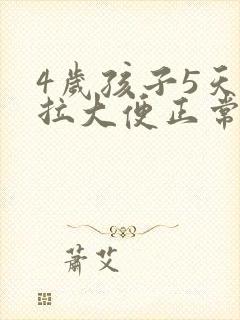 4歲孩子5天
拉大便正常
蕭艾